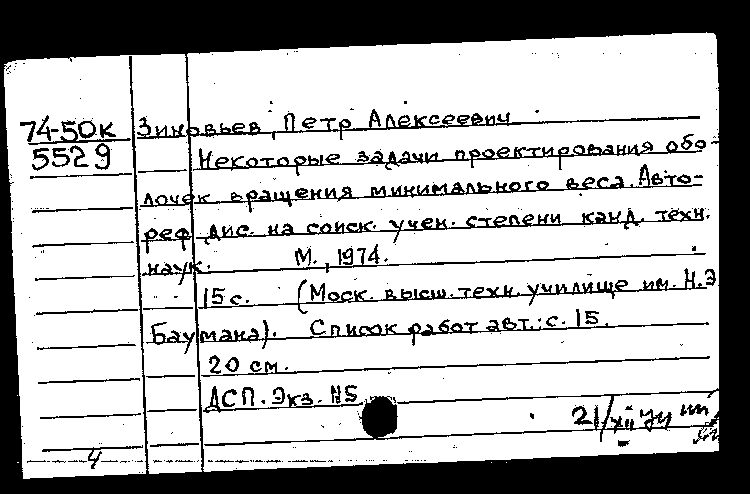 74-50к Зиновьев, Петр Алексеевич
5529 Некоторые задачи проектирования обо-
лочек вращения минимального веса. Авто-
реф дис. на соиск. учен. степени канд. техн.
наук. М., 1974.
15 с. (Моск. высш. техн. училище им. Н.Э
Баумана). Список работ авт.: с. 15.
20 см.
ДСП. Экз. №5
21/xii
4